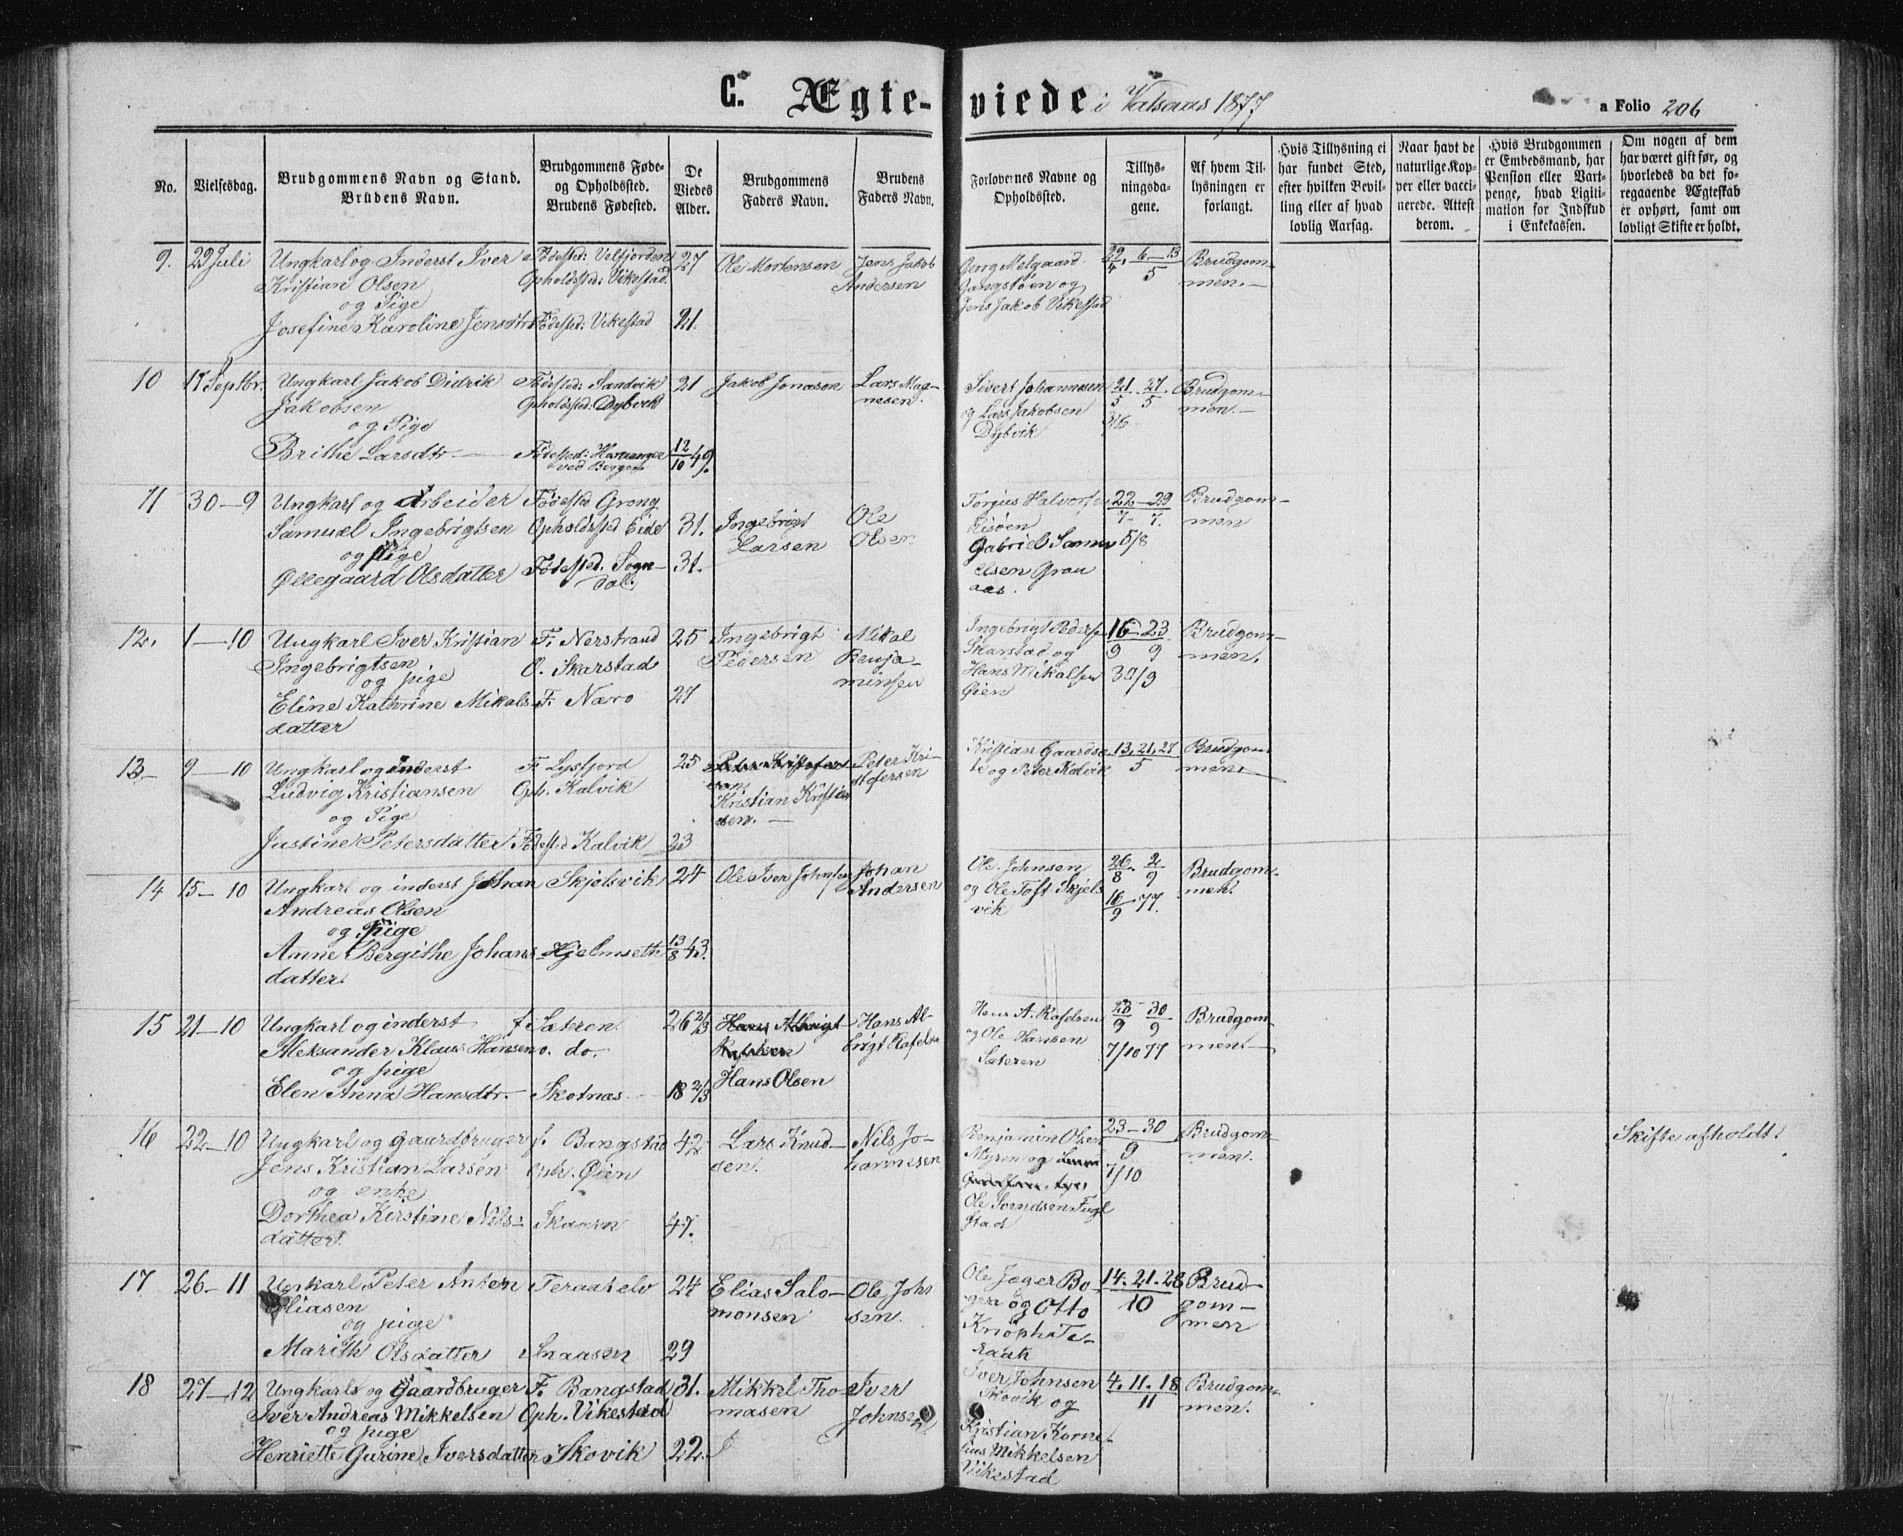 C. Ægte-viede i Valsaas 1877
a Folio 206
No.
Vielsesdag.
Brudgommens Navn og Stand.
Brudens Navn.
Brudgommens Føde-
og Opholdssted.
Brudens Fødested.
De
Viedes
Alder.
Brudgommens
Faders Navn.
Brudens
Faders Navn.
Forlovernes Navne og
Opholdssted.
Tillys-
ningsda-
gene.
Af hvem Til-
lysningen er
forlangt.
Hvis Tillysning ei
har fundet Sted,
efter hvilken Bevil-
ling eller af hvad
lovlig Aarsag.
Naar havt de
naturlige Kop-
per eller vacci-
nerede. Attest
derom.
Hvis Brudgommen
er Embedsmand, har
Pension eller Vart-
penge, hvad Ligiti-
mation for Indskud
i Enkekassen.
Om nogen af dem
har været gift før, og
hvorledes da det fo-
regaaende Ægteskab
er ophørt, samt om
lovligt Skifte er holdt.
9. 29 Juli
Ungkarl og Inderst Iver
Kristian Olsen
og Pige
Josefine Karoline Jensdtr
Fødested: Velfjorden
Opholdsted: Vikestad.
Fødested: Vikestad
27
21.
Ole Mortensen
Jens Jakob
Andersen
Georg Melgaard
Gangstøen og
Jens Jakob Vikestad
29/4. 6–13/5
Brudgom-
men.–
10 17 Septbr.
Ungkarl Jakob Didrik
Jakobsen
og Pige
Brithe Larsdtr.
Fødested: Sandvik
Opholdsted: Dybvik
Fødested: Haranger
ved Bergen
21
12/10 49.
Jakob Jonasen
Lars Mag-
nesen.
Sivert Johannesen
og Lars Jakobsen
Dybvik
21/5. 27/5
3/6.
Brudgom-
men.–
11 30–9
Ungkarl og Arbeider
Samuel Ingebrigtsen
og pige
Øllegaard Olsdatter
Fødested Grong
Opholdsted Eide
Fødested. Sogn-
dal.
31.
31.
Ingebrigt
Larsen
Ole
Olsen
Torjus Halvorsen
Risøen
Gabriel Samu
elsen Grau
aas.
22/7–29/7.
5/8
Brudgom-
men
12. 1–10
Ungkarl Iver Kristian
Ingebrigtsen
og pige
Eline Kathrine Mikals-
datter
F. Nerstrand
O. Skarstad
F. Næro
25
27
Ingebrigt
Pedersen
Mikal
Benja-
minsen
Ingebrigt Pedersen
Skarstad og
Hans Mikalsen
Øien
16/9–23/9
30/9
Brudgom-
men.
13– 9–10
Ungkarl og inderst
Ludvig Kristiansen
og Pige
Justine Petersdatter
F. Lysfjord
Oph. Kalvik
Fødested Kalvik
25
23
Peter Kristofer
sen
Kristian Kristian
sen.–
Peter Kri-
stofersen
Kristian Gaardsø-
te og Peter Kalvik
13, 21, 27/5
Brudgom-
men.–
14 15–10
Ungkarl og inderst Johan
Andreas Olsen
og pige
Anne Bergithe Johans-
datter.
Skjelsvik
Hjelmseth
24
13/8 43.
Ole Iver Johnsen
Johan
Andersen
Ole Johnsen
og Ole Toft Skjels
vik
26/8. 2/9
16/9 77.
Brudgom-
men.
15 21–10
Ungkarl og inderst
Aleksander Klaus Hansen
og pige
Elen Anna Hansdtr.
f. Sæteren
o. do.
Skotnæs
26 2/3
18 2/3
Hans Albrigt
Rafelsen
Hans Olsen
Hans Al-
brigt Rafelsen
Hans A. Rafelsen
og Ole Hansen
Sæteren
23/9–30/9
7/10 77
Brudgom-
men.–
16 22–10
Ungkarl og gaardbruger
Jens Kristian Larsen
og enke
Dorthea Kirstine Nils-
datter.
f. Bangstad
Oph. Øien
Skaaen
42
47.
Lars Knud-
sen.
Nils Jo-
hannesen
Benjamin Olsen
Myren og
Ole Svendsen Fugl
stad
23–30/9
7/10
Brudgom-
men.
Skifte afholdt.
17 26–11
Ungkarl Peter Anton
Eliasen
og pige
Marith Olsdatter
Teraatelv
Snaasen
24
29
Elias Salo-
monsen
Ole John
sen.
Ole Jæger Bo-
gen og Otto
Knoph Te-
raak
14. 21. 28/10
Brud-
gom-
men
18 27–12
Ungkarl og Gaardbruger
Iver Andreas Mikkelsen
og pige
Henriette Gurine Iversdatter
F. Bangstad
Oph. Vikestad
Skovik
31.
22.
Mikkel Tho-
masen
Iver
Johnsen
Iver Johnsen
Skovik og
Kristian Korne-
lius Mikkelsen
Vikestad
4. 11. 18/11
Brudgom-
men.